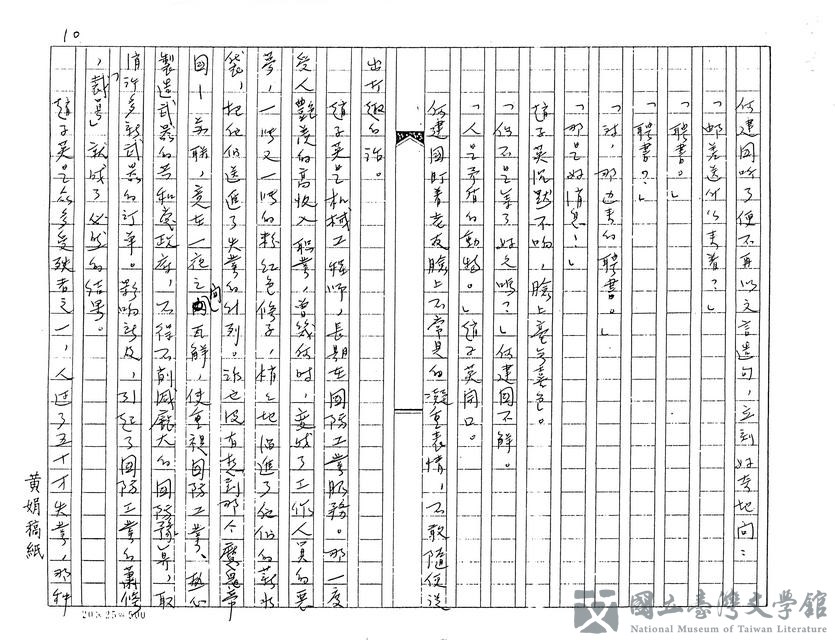 10
何建國听了便不再以文言造句,立刻好奇地问:
「邮差送什么来着?」
「聘書。」
「聘書?」
「对,那边来的聘書。」
「那是好消息!」
趙子英沉默不响,臉上毫無喜色。
「但不是等了好久嗎?」何建國不解。
「人是矛盾的動物。」趙子英開口。
何建國盯着老友臉上不常見的凝重表情,不敢隨便送
出打趣的話。
趙子英是机械工程师,長期在國防工業服務。那一度
受人艷羨的高收入职業,曾幾何時,变成了工作人員的惡
夢,一張又一張的粉紅色條子,悄悄地溜進了他們的薪水
袋,把他們送進了失業的行列。誰也没有想到那个魔鬼帝
國—苏联,竟在一夜之间瓦解,使重視國防工業、热心
製造武器的共和党政府,不得不削减龐大的國防預算,取
消許多新武器的订单。影响所及,引起了國防工業的蕭條
,「裁員」就成了必然的結果。
趙子英是众多受殃者之一,人过了五十才失業,那种
黄娟稿紙
20×25=500
國立臺灣文學館
National Museum of Taiwan Literature